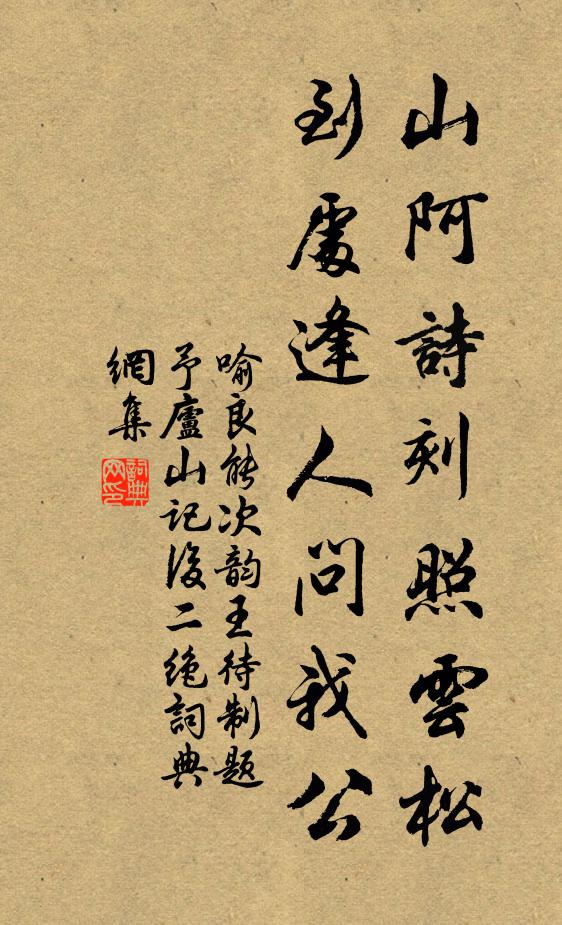 山阿詩刻照雲松
到處逢人問我公
喻良能次韵王待制題
予廬山記後二绝詞典
網集
詞典网印